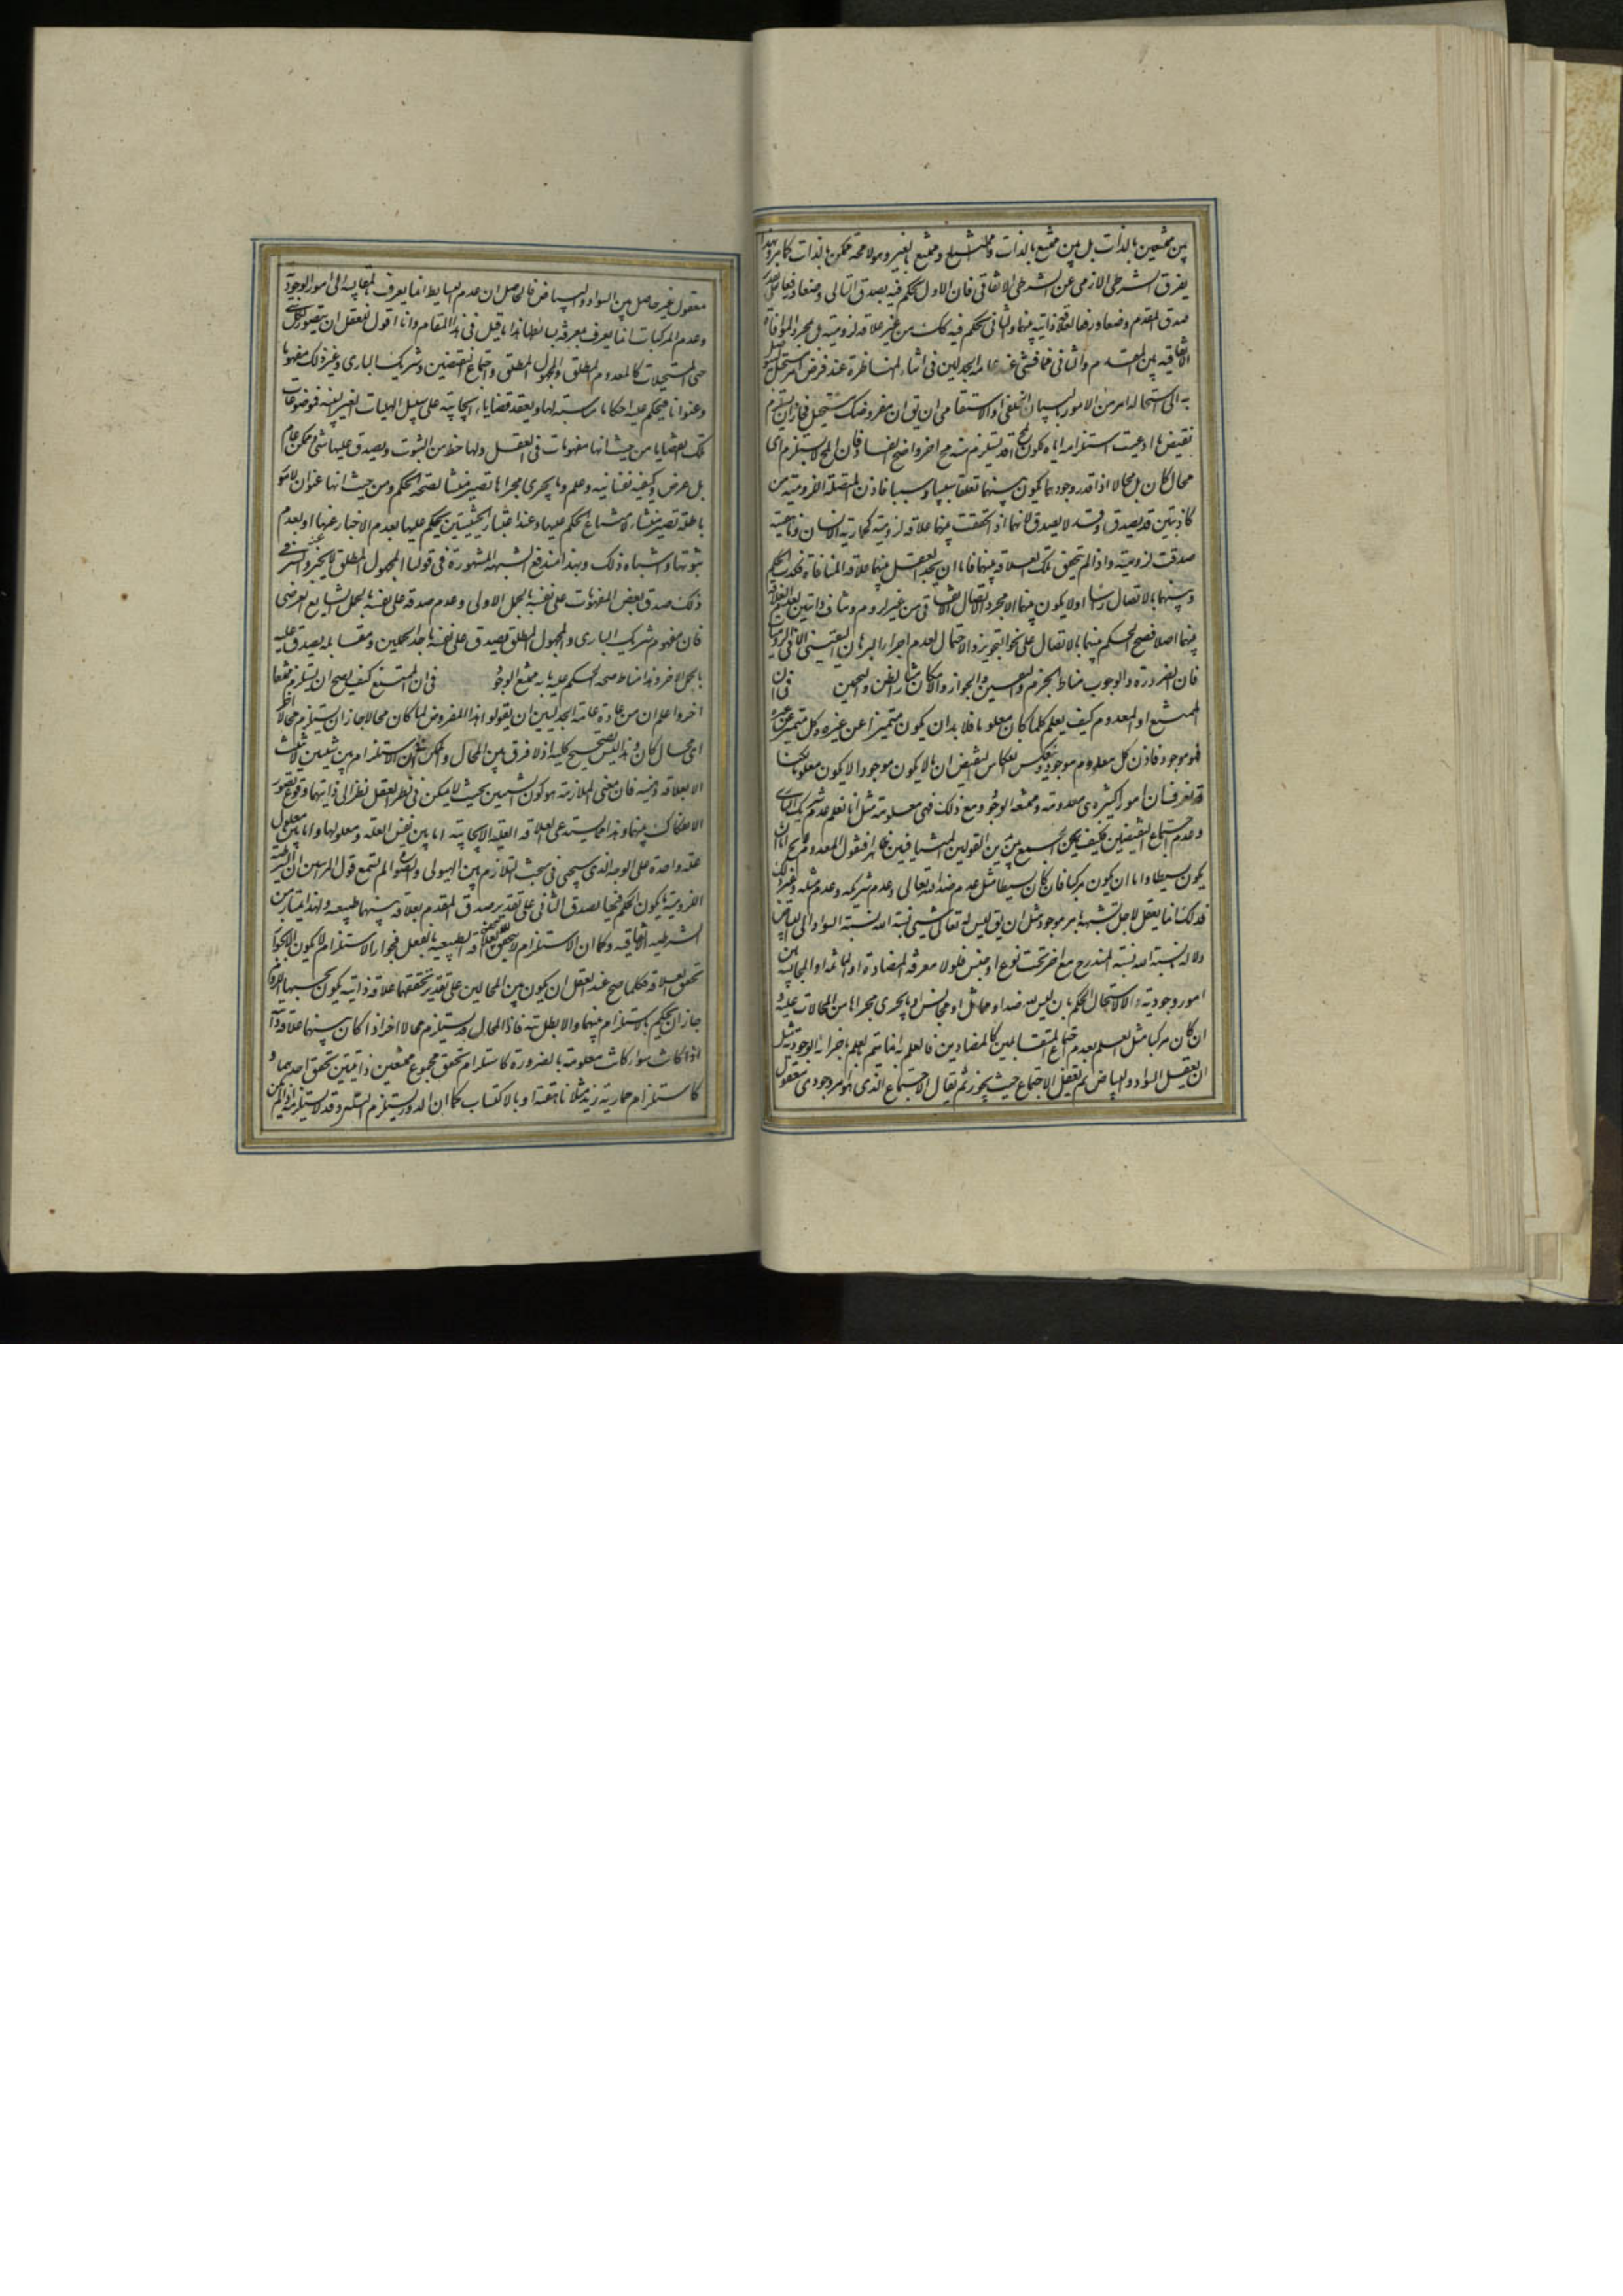 بين ممتنعين بالذات بل بين ممتنع بالذات وممتنع بالغير وهو لا محة ممكن بالذات كما مر وبهذا
يفرق الشرطى اللازمى عن الشرطى الاتفاقى فان الاول يحكم فيه بصدق التالى وضعا ورفعا على تقدير
صدق المقدم وضعا ورفعا لعلاقة ذاتية بينهما والثانى يحكم فيه كك من غير علاقه لزومية بل بمجرد الموافاة
الاتفاقيه بين المقدم والتالى فما فشى عند عامه الجدليين فى اثناء المناظرة عند فرض امر مستحيل ليتوصل
به الى استحاله امر من الامور بالبيان الخلفى او الاستقامى ان يق ان مفروضك مستحيل فجاز ان يستلزم
نقيض ما ادعيت استلزامه اياه لكون المح قد يستلزم منه مح اخر واضح الفساد فان المح لا يستلزم اى
محال كان بل محالا اذا قدر وجودهما يكون بينهما تعلقا سببيا ومسببيا فاذن المتصلة اللزوميه من
كاذبتين قد يصدق وقد لا يصدق لانهما اذا تحققت بينهما علاقه لزومية كحمارية الانسان وناهقيته
صدقت لزومية واذا لم يتحقق تلك العلاقه بينهما فاما ان يجد العقل بينهما علاقه المنافاة فكذب الحكم
بينهما بالاتصال راسا او لا يكون بينهما الا مجرد الاتصال الاتفاقى من غير لزوم ومناف ذاتيين لعدم العلاقة
بينهما اصلا فصح الحكم بينهما بالاتصال على نحو التجويز والاحتمال لعدم اجراء البرهان اليقينى الا فى اللزوميات
فان الضرورة والوجوب مناط الجزم والتعيين والجواز والامكان مثار الظن والتخمين فى ان
الممتنع او المعدوم كيف يعلم كلما كان معلوما فلا بد ان يكون متميزا عن غيره وكل متميز عن غيره
فهو موجود فاذن كل معلوم موجود وينعكس انعكاس النقيض ان ما لا يكون موجودا لا يكون معلوما لكنا
قد نعرف ان امورا كثيره هى معدومة وممتنعه الوجود ومع ذلك فهى معلومة مثل انا نعلم عدم شريك البارى
وعدم اجتماع النقيضين فكيف يمكن الجمع بين هذين القولين المتنافيين ظاهرا فنقول المعدوم لا يخ اما ان
يكون بسيطا واما ان يكون مركبا فان كان بسيطا مثل عدم ضد الله تعالى وعدم شريكه وعدم مثله وغير ذلك
فذلك انما يعقل لاجل تشبهه بامر موجود مثل ان يق ليس له تعالى شىء نسبته اليه نسبة السواد الى البياض
ولا له نسبة اليه نسبة المندرج مع اخر تحت نوع او جنس فلولا معرفة المضادة او المماثله او المجانسه بين
امور وجودية لاستحال الحكم بان ليس لله ضد او مماثل او مجانس او ما يجرى مجراها من المحالات عليه و
ان كان مركبا مثل العلم بعدم اجتماع المتقابلين كالمتضادين فالعلم به انما يتم بالعلم باجزائه الوجودية مثل
ان يعقل السواد والبياض ثم يعقل الاجتماع حيث يجوز ثم يقال الاجتماع الذى هو امر وجودى معقول
معقول غير حاصل بين السواد والبياض فالحاصل ان عدم البسايط انما يعرف بالمقايسة الى الامور الوجودية
وعدم المركبات انما يعرف بمعرفة بسائطها هذا ما قيل فى هذا المقام وانا اقول للعقل ان يتصور لكل شىء
حتى المستحيلات كالمعدوم المطلق والمجهول المطلق واجتماع النقيضين وشريك البارى وغير ذلك مفهوما
وعنوانا فيحكم عليه احكاما مناسبة لها ويعقد قضايا ايجابية على سبيل الهليات الغير البتيه فموضوعات
تلك القضايا من حيث انها مفهومات فى العقل ولها حظ من الثبوت ويصدق عليها شىء وممكن عام
بل عرض وكيفيه نفسانيه وعلم وما يجرى مجراها تصير منشأ لصحة الحكم ومن حيث انها عنوان لامور
باطلة تصير منشاء لامتناع الحكم عليها وعند اعتبار الحيثيتين يحكم عليها بعدم الاخبار عنها او بعدم
ثبوتها واشباه ذلك وبهذا تندفع الشبهه المشهورة فى قولنا المجهول المطلق لا يخبر عنه والسر فى
ذلك صدق بعض المفهومات على نفسه بالحمل الاولى وعدم صدقه على نفسه بالحمل الشايع العرضى
فان مفهوم شريك البارى والمجهول المطلق يصدق على نفسه باحد الحملين ومقابله يصدق عليه
بالحمل الاخر وهذا مناط صحه الحكم عليه بانه ممتنع الوجود فى ان الممتنع كيف يصح ان يستلزم ممتنعا
اخر واعلم ان من عادة عامة الجدليين ان يقولوا هذا المفروض لما كان محالا جاز ان يستلزم محالا اخر
اى محال كان وهذا ليس بصحيح كليه اذ لا فرق بين المحال والممكن فى ان الاستلزام بين شيئين لا يثبت
الا بعلاقه ذاتيه فان معنى الملازمة هو كون الشيئين بحيث لا يمكن فى نظر العقل نظرا الى ذاتيهما وقوع تصور
الانفكاك بينهما وهذا مما يستدعى العلاقه العقلية الايجابيه اما بين نفس العلة ومعلولها واما بين معلولى
علة واحدة على الوجه الذى سيجىء فى مبحث التلازم بين الهيولى والصورة او لم تسمع قول المبرهنين ان الشرطية
اللزومية ما يكون الحكم فيها بصدق التالى على تقدير صدق المقدم لعلاقة بينهما طبيعيه ولهذا يمتاز من
الشرطيه الاتفاقيه وكما ان الاستلزام لا يتحقق الا بتحقق العلاقه الطبيعيه بالفعل فجواز الاستلزام لا يكون الا بجواز
تحقق العلاقه فكلما صح عند العقل ان يكون بين المحالين على تقدير تحققهما علاقة ذاتيه يكون بحسبها التلازم
جاز ان يحكم بالاستلزام بينهما والا بطل فاذا المحال قد يستلزم محالا اخر اذا كان بينهما علاقة ذاتية
سواء كانت معلومة بالضرورة كاستلزام تحقق مجموع ممتنعين ذاتيين تحقق احدهما و
كاستلزام حمارية زيد مثلا ناهقيته او بالاكتساب كما ان الدور يستلزم التس وقد لا يستلزمه اذا لم يكن